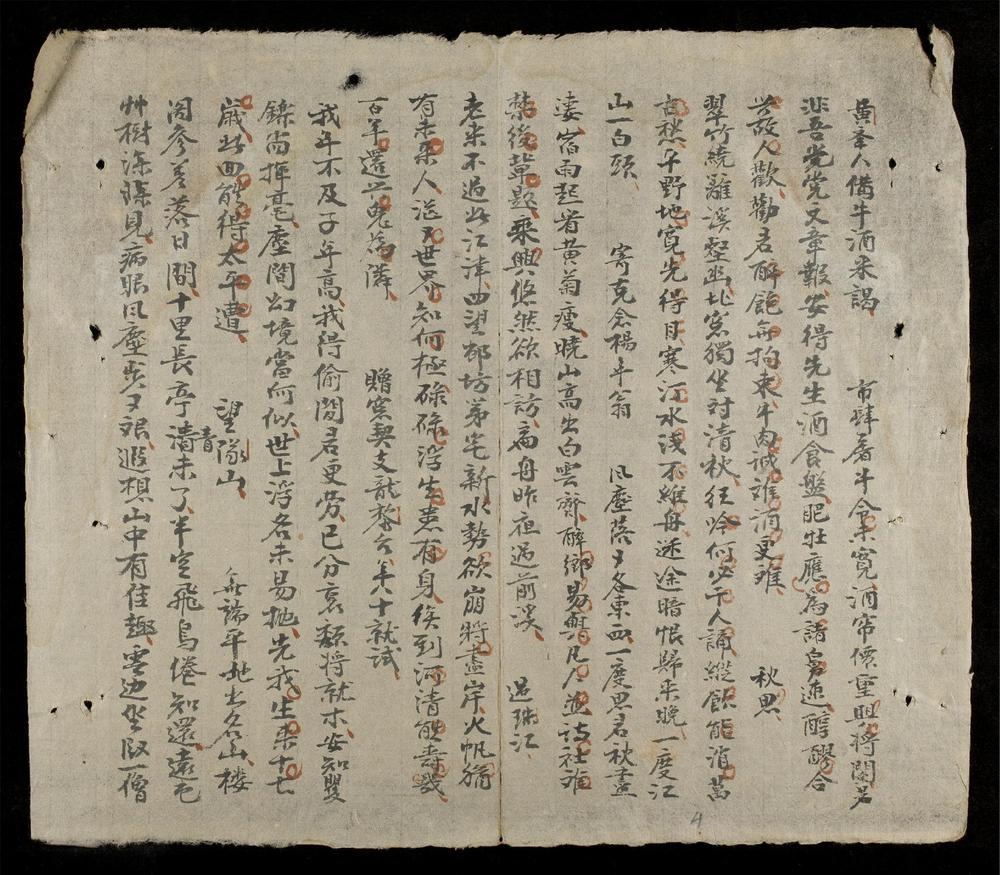 黃夆人借牛酒米謁　市肆屠牛余未寬酒帘價重興將闌若
非吾党党文章報安得先生酒食盤肥壮應為諸舅速醇醪合
共故人歡勸君醉飽無拘束牛肉誠难酒更难　秋思
翠竹繞離溪壑幽北窓獨坐对清秋狂吟何必千人誦縱飲能消萬
古愁平野地寬先得月寒江水淺不維舟迷途暗恨歸来晚一度江
山一白頭　寄克念楊年翁　風塵落々各東西一度思君秋盡
凄宿雨起看黃菊瘦曉山高出白雲齊醉鄉易與凡人迯詩社难
禁後輩題乘興悠然欲相訪扁舟昨夜過前溪　過珠江
老来不過此江津西望都坊茅宅新水勢欲崩將盡岸火帆猶
有未来人滔々世界知何極碌碌浮生患有身俟到河清能壽幾
百年還与鬼為隣　贈窓契支龍鰲公年八十就試
我年不及子年高我得偷閒君更劳已分衰顏將就木安知矍
鑠尚揮毫塵間幻境當何似世上浮名未易抛先我生来十七
歲些回能得太平遭　望隊山　無端平地出名山楼
阁參差落日間十里長亭清未了半空飛鳥倦知還遠
青
艸樹深難見病眼風塵步々艰遐想山中有佳趣雲边坐臥一僧